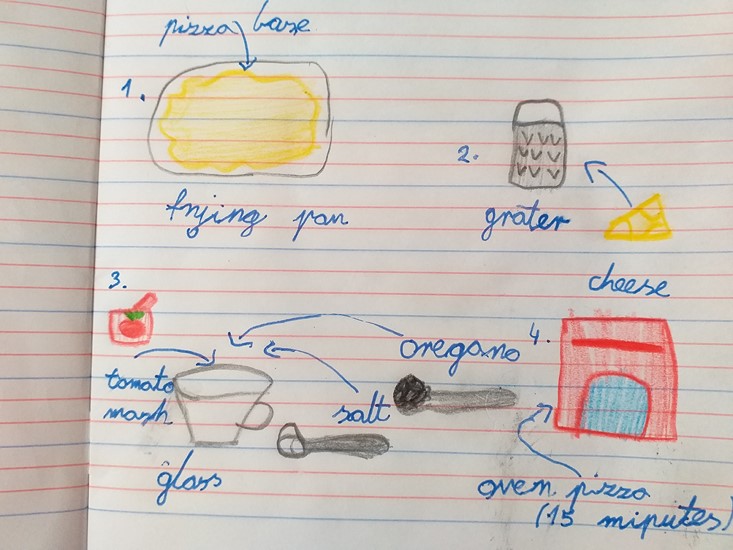 pizza base
1.
frying pan
2.
grater
cheese
3.
tomato
mash
oregano
salt
glass
4.
oven pizza
(15 minutes)